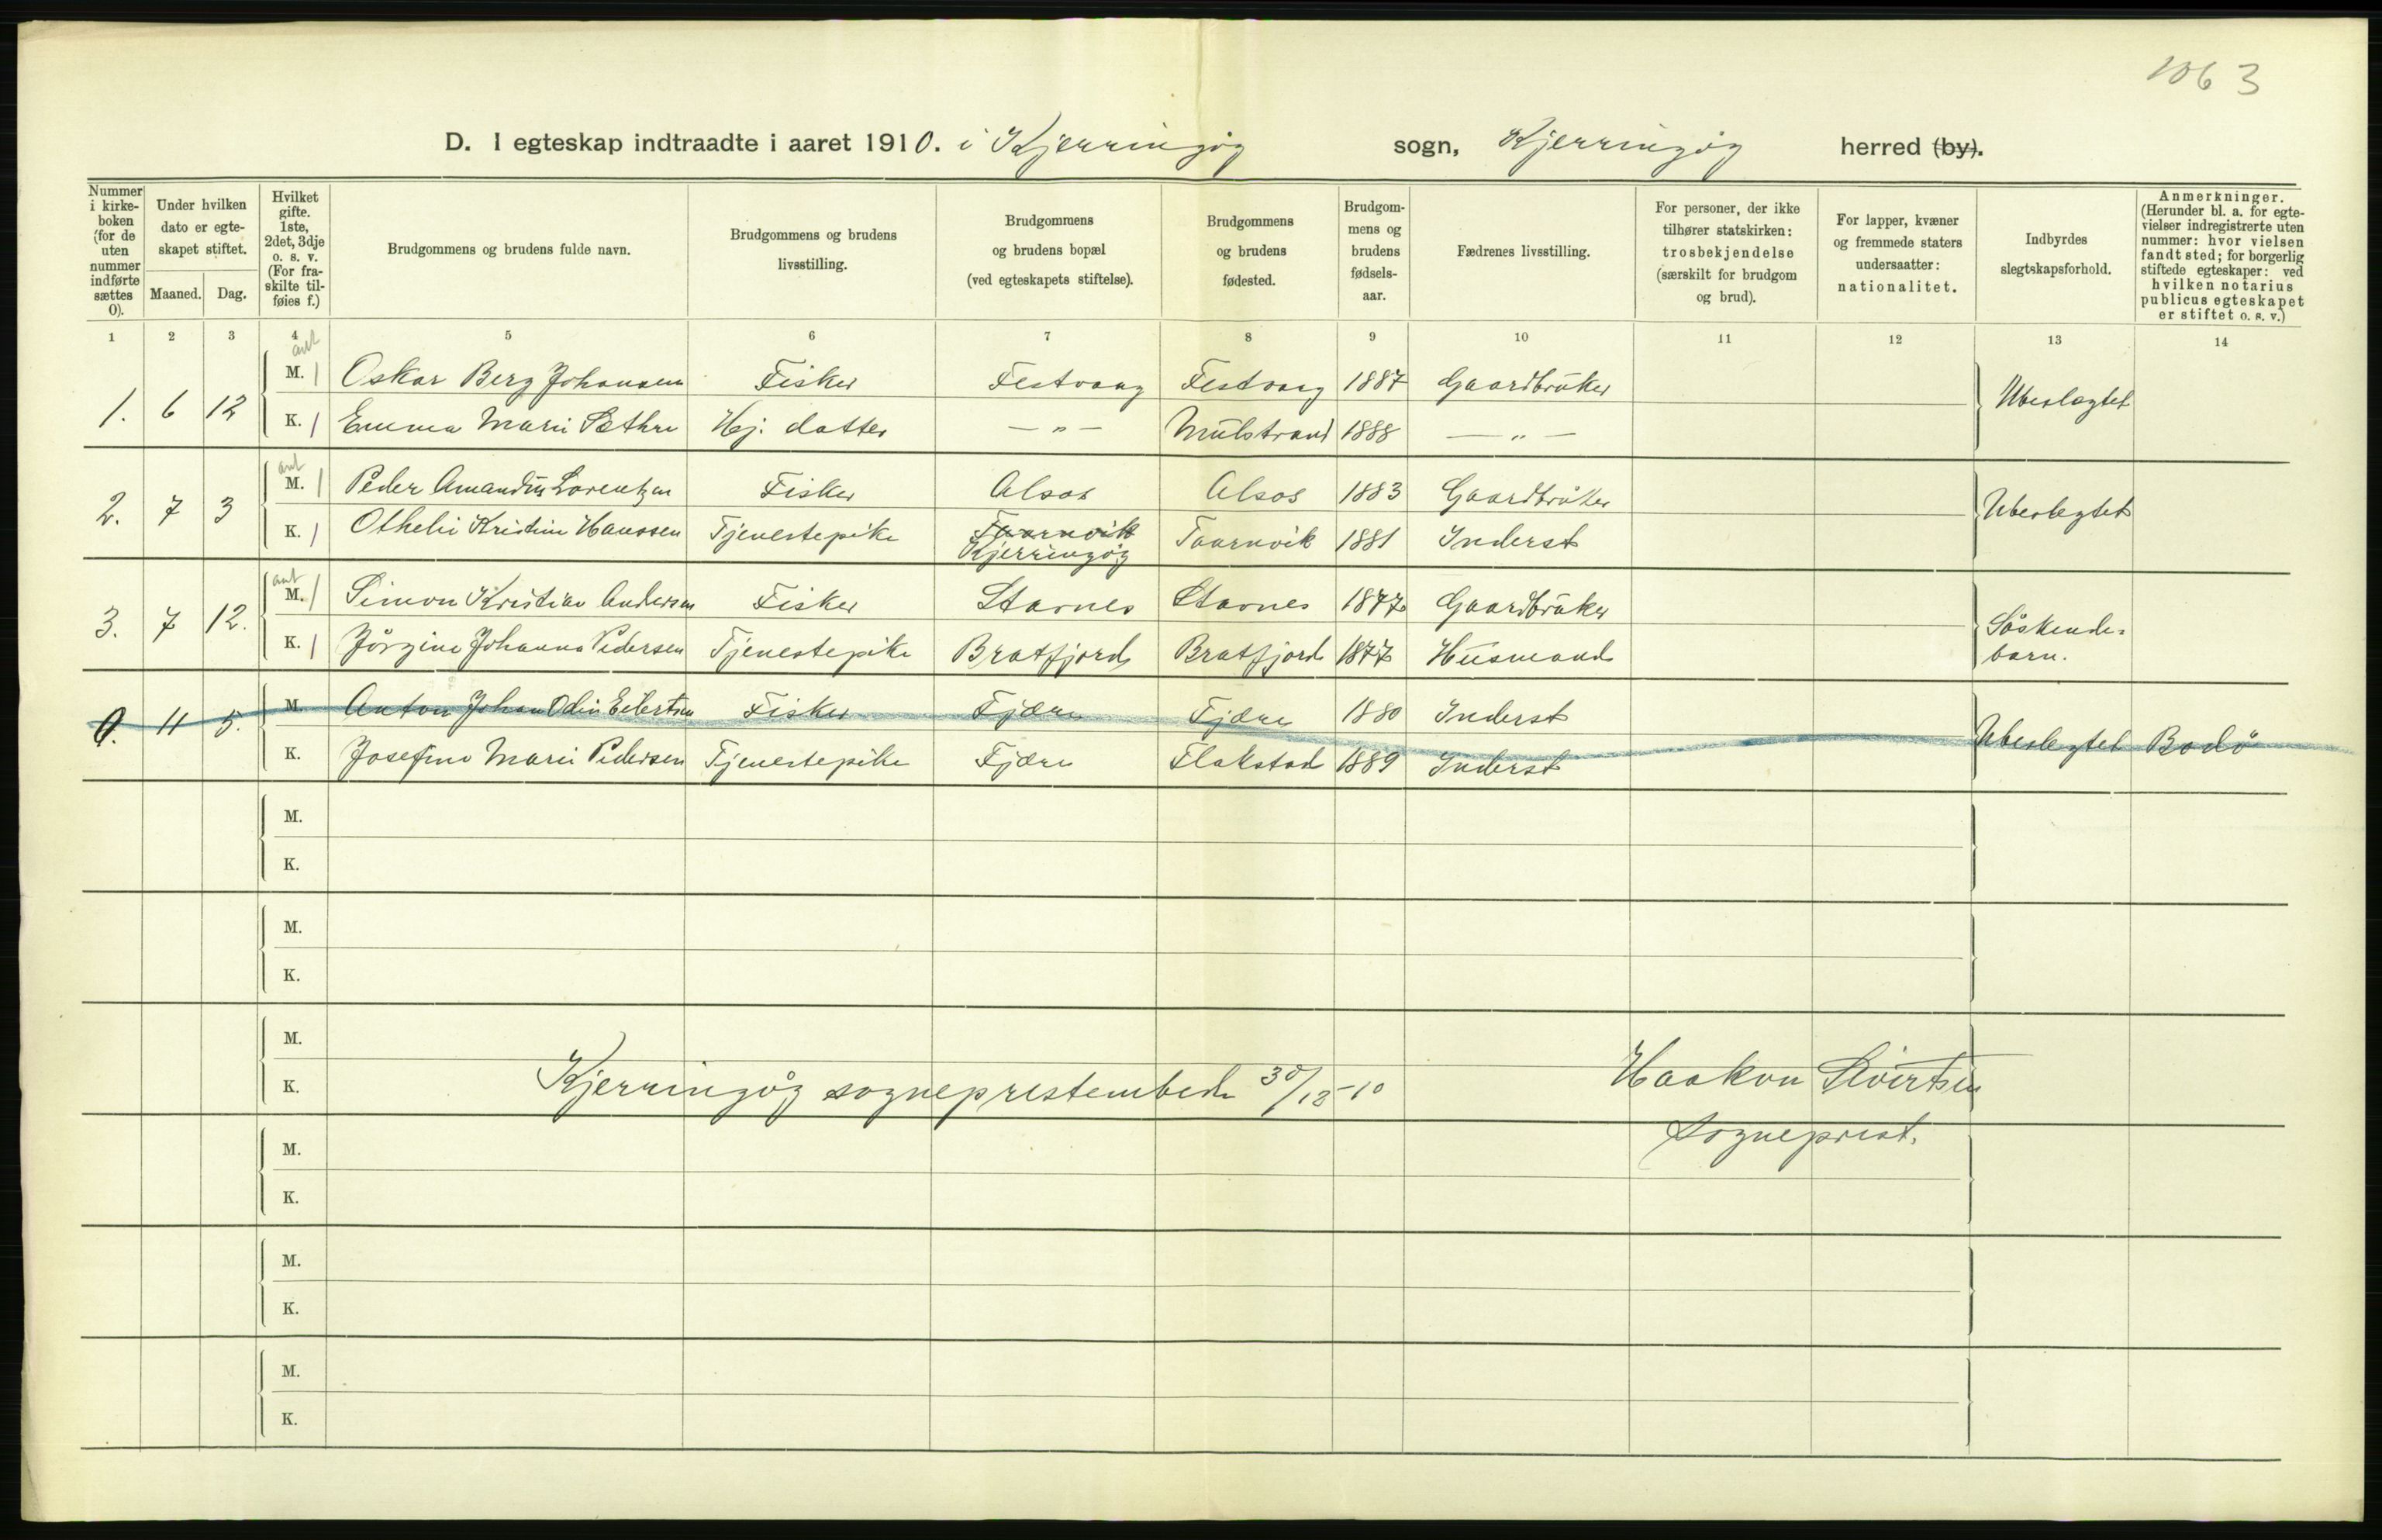 1063
D. I egteskap indtraadte i aaret 1910. i Kjerringøy sogn, Kjerringøy herred (by).
Nummer i kirkeboken (for de uten nummer indførte sættes 0).
Under hvilken dato er egteskapet stiftet.
Maaned. Dag.
Hvilket gifte. 1ste, 2det, 3dje o. s. v. (For fraskilte tilføies f.)
Brudgommens og brudens fulde navn.
Brudgommens og brudens livsstilling.
Brudgommens og brudens bopæl (ved egteskapets stiftelse).
Brudgommens og brudens fødested.
Brudgommens og brudens fødselsaar.
Fædrenes livsstilling.
For personer, der ikke tilhører statskirken: trosbekjendelse (særskilt for brudgom og brud).
For lapper, kvæner og fremmede staters undersaatter: nationalitet.
Indbyrdes slegtskapsforhold.
Anmerkninger. (Herunder bl. a. for egtevielser indregistrerte uten nummer: hvor vielsen fandt sted; for borgerlig stiftede egteskaper: ved hvilken notarius publicus egteskapet er stiftet o. s. v.)
1 2 3 4 5 6 7 8 9 10 11 12 13 14
ant
1. 6 12 M. 1 Oskar Berg Johansen Fisker Festvaag Festvaag 1887 Gaardbruker Ubeslegtet
K. 1 Emma Marie Sæthre Hj. datter — " — Mulstrand 1888 — " —
ant
2. 7 3 M. 1 Peder Amandus Lorentzen Fisker Alsos Alsos 1883 Gaardbruker Ubeslegtet
K. 1 Othelie Kristine Hanssen Tjenestepike Taarnvik Kjerringøy Taarnvik 1881 Inderst
ant
3. 7 12. M. 1 Simon Kristian Andersen Fisker Starnes Starnes 1877 Gaardbruker Söskende-
K. 1 Jörgine Johanna Pedersen Tjenestepike Bratfjord Bratfjord 1877 Husmand barn.
0. 11 5. M. Anton Johan Odin Eilertsen Fisker Fjære Fjære 1880 Inderst Ubeslegtet Bodö
K. Josefine Marie Pedersen Tjenestepike Fjære Flakstad 1889 Inderst
M.
K.
M.
K.
M.
K. Kjerringøy sogneprestembede 30/12-10 Haakon Sivertsen
M. sogneprest.
K.
M.
K.
M.
K.